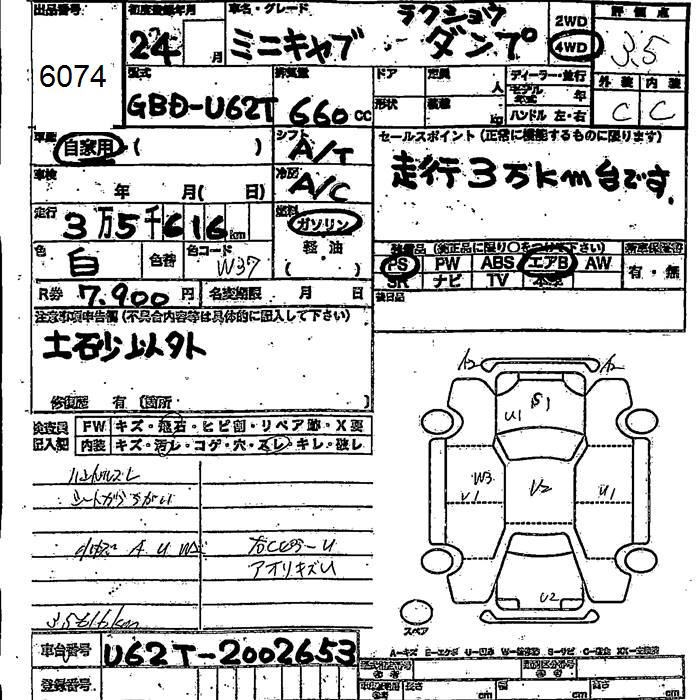 出品番号 初度登録年月 車名・グレード 評価点
6074
24 月
ミニキャブ ラクショウ ダンプ
2WD
4WD
3.5
型式 排気量 ドア 定員 ディーラー・並行
GBD-U62T 660cc
人 モデル年式 年
形状 積載 kg ハンドル 左・右
外装 内装
C C
車歴 自家用 ( )
シフト A/T
セールスポイント(正常に機能するものに限ります)
走行3万km台です.
車検 年 月( 日)
冷房 A/C
走行 3万5千616km
燃料 ガソリン
軽油
( )
色 白 色替 色コード W37
装備品(純正品に限り○をつけて下さい) 新車保証書
PS PW ABS エアB AW 有・無
SR ナビ TV 本革
R券 7.900円 名変期限 月 日
後日品
注意事項申告欄(不具合内容等は具体的に記入して下さい)
土砂以外
修復歴 有(箇所 )
検査員記入記
FW キズ・飛石・ヒビ割・リペア跡・X要
内装 キズ・汚レ・コゲ・穴・スレ・キレ・破レ
ハンドルスレ
小キズ A U W
アオリキズU
35616km
A2 A2
U1 S1
W3 U1 U2 U1
U2
スペア
車台番号 U62T-2002653
登録番号
長さ cm 幅 cm 高さ cm